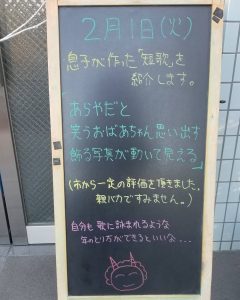 2月1日(火)
息子が作った「短歌」を
紹介します。
「あらやだと
笑うおばあちゃん思い出す
飾る写真が動いて見える」
(市から一定の評価を頂きました。
親バカですみません。)
自分も歌に詠まれるような
年のとり方ができるといいな...